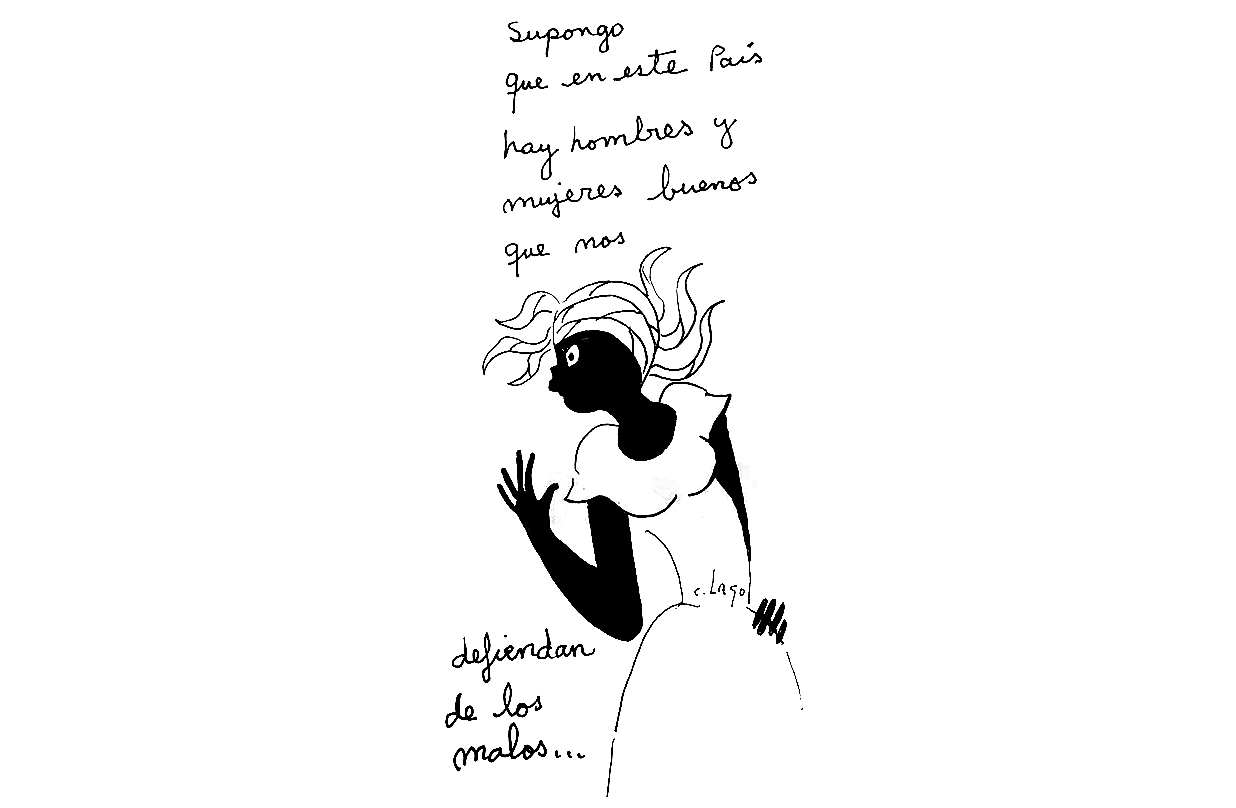 Supongo
que en este País
hay hombres y
mujeres buenos
que nos
c. Lago
defiendan
de los
malos...